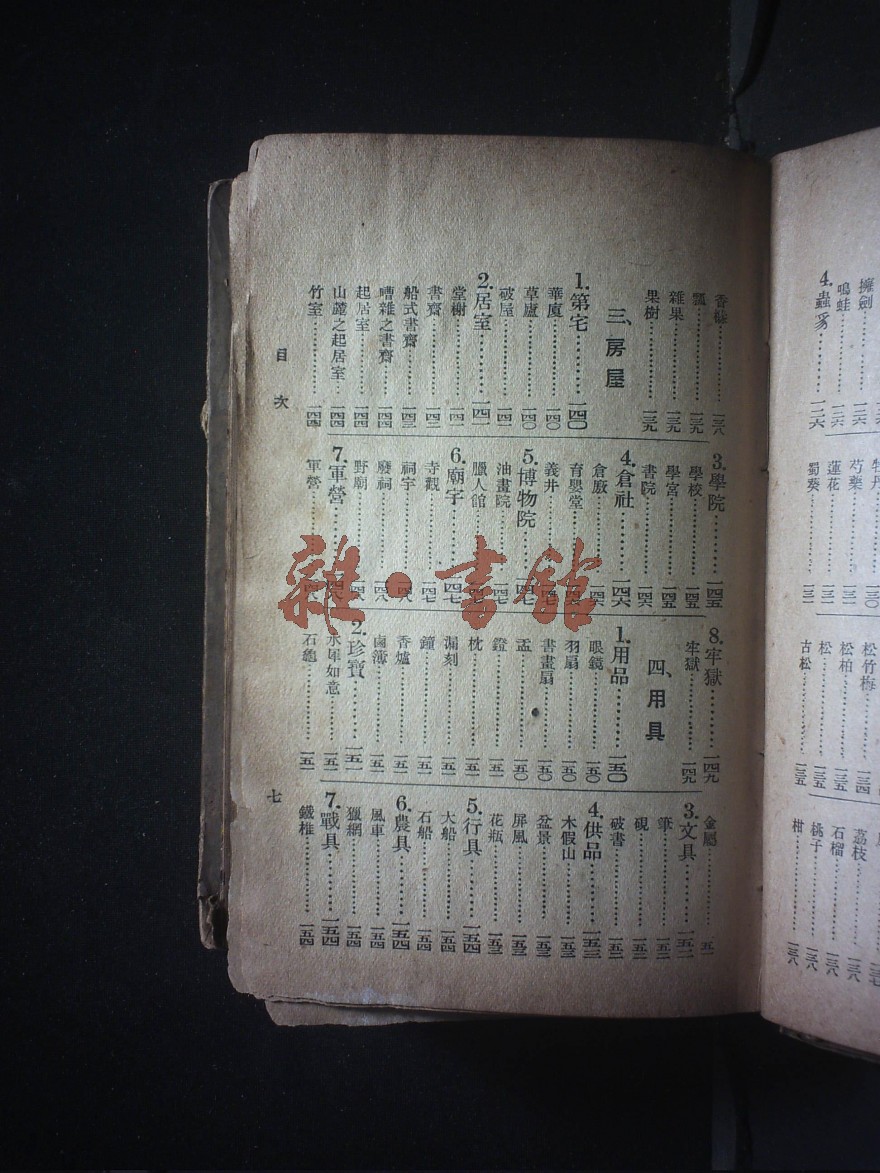 擁劍……一二六
鳴蛙……一二六
4.蟲豸……一二六
牡丹
芍藥……一三〇
蓮花……一三一
蜀葵……一三一
松竹梅……一三四
松柏……一三五
松……一三五
古松……一三五
荔枝……一三八
石榴……一三八
桃子……一三八
柑……一三八
香櫞……一三八
瓢……一三九
雜果……一三九
果樹……一三九
三、房屋
1.第宅……一四〇
華廈……一四〇
草廬……一四〇
破屋……一四一
2.居室……一四一
堂榭……一四一
書齋……一四二
船式書齋……一四三
嘈雜之書齋……一四四
起居室……一四四
山麓之起居室……一四四
竹室……一四四
3.學院……一四五
學校……一四五
學宮……一四五
書院……一四六
4.倉社……一四六
倉廒……一四六
育嬰堂……一四六
義井
5.博物院……一四七
油畫院……一四七
臘人館
6.廟宇……一四七
寺觀……一四七
祠宇……一四八
廢祠……一四八
野廟……一四八
7.軍營……一四八
軍營……一四八
8.牢獄……一四九
牢獄……一四九
四、用具
1.用品……一五〇
眼鏡……一五〇
羽扇……一五〇
書畫扇……一五〇
盂……一五〇
鐙……一五一
枕……一五一
漏刻……一五一
鐘……一五一
香爐……一五一
鹵簿……一五一
2.珍寶……一五一
水犀如意……一五一
石龜……一五一
金屬
3.文具……一五二
筆……一五二
硯……一五二
破書……一五二
4.供品……一五三
木假山……一五三
盆景……一五三
屏風……一五三
花瓶……一五三
5.行具……一五四
大船……一五四
石船……一五四
6.農具……一五四
風車……一五四
獵網……一五四
7.戰具……一五四
鐵椎……一五四
目次
七
雜·書館